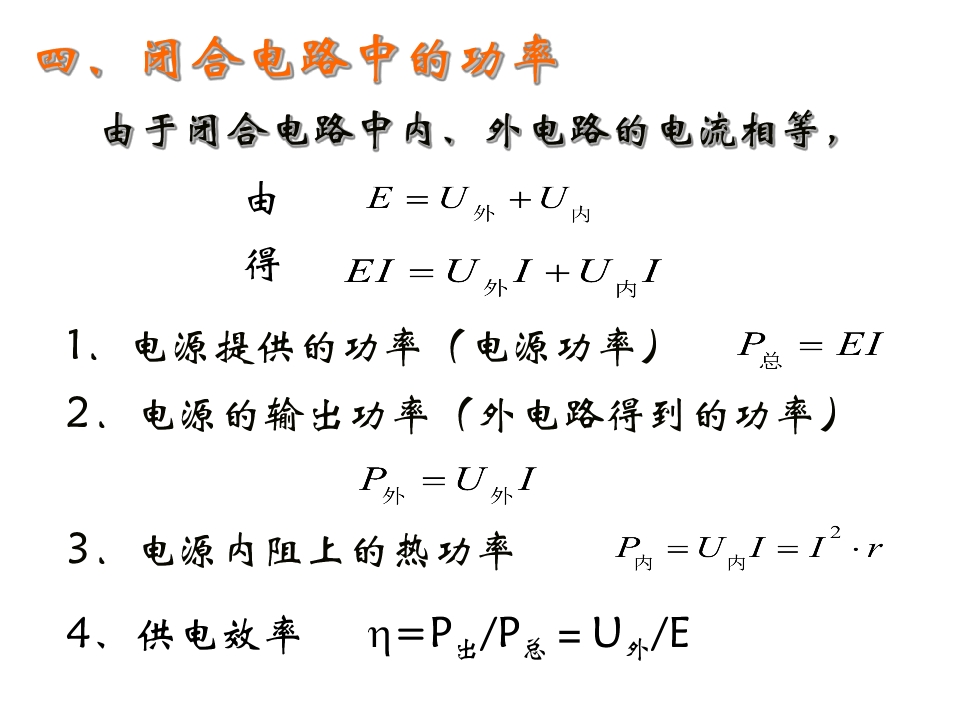 四、闭合电路中的功率
由于闭合电路中内、外电路的电流相等，
由 E = U外 + U内
得 EI = U外I + U内I
1、电源提供的功率（电源功率） P总 = EI
2、电源的输出功率（外电路得到的功率）
P外 = U外I
3、电源内阻上的热功率 P内 = U内I = I²·r
4、供电效率 η=P出/P总 = U外/E